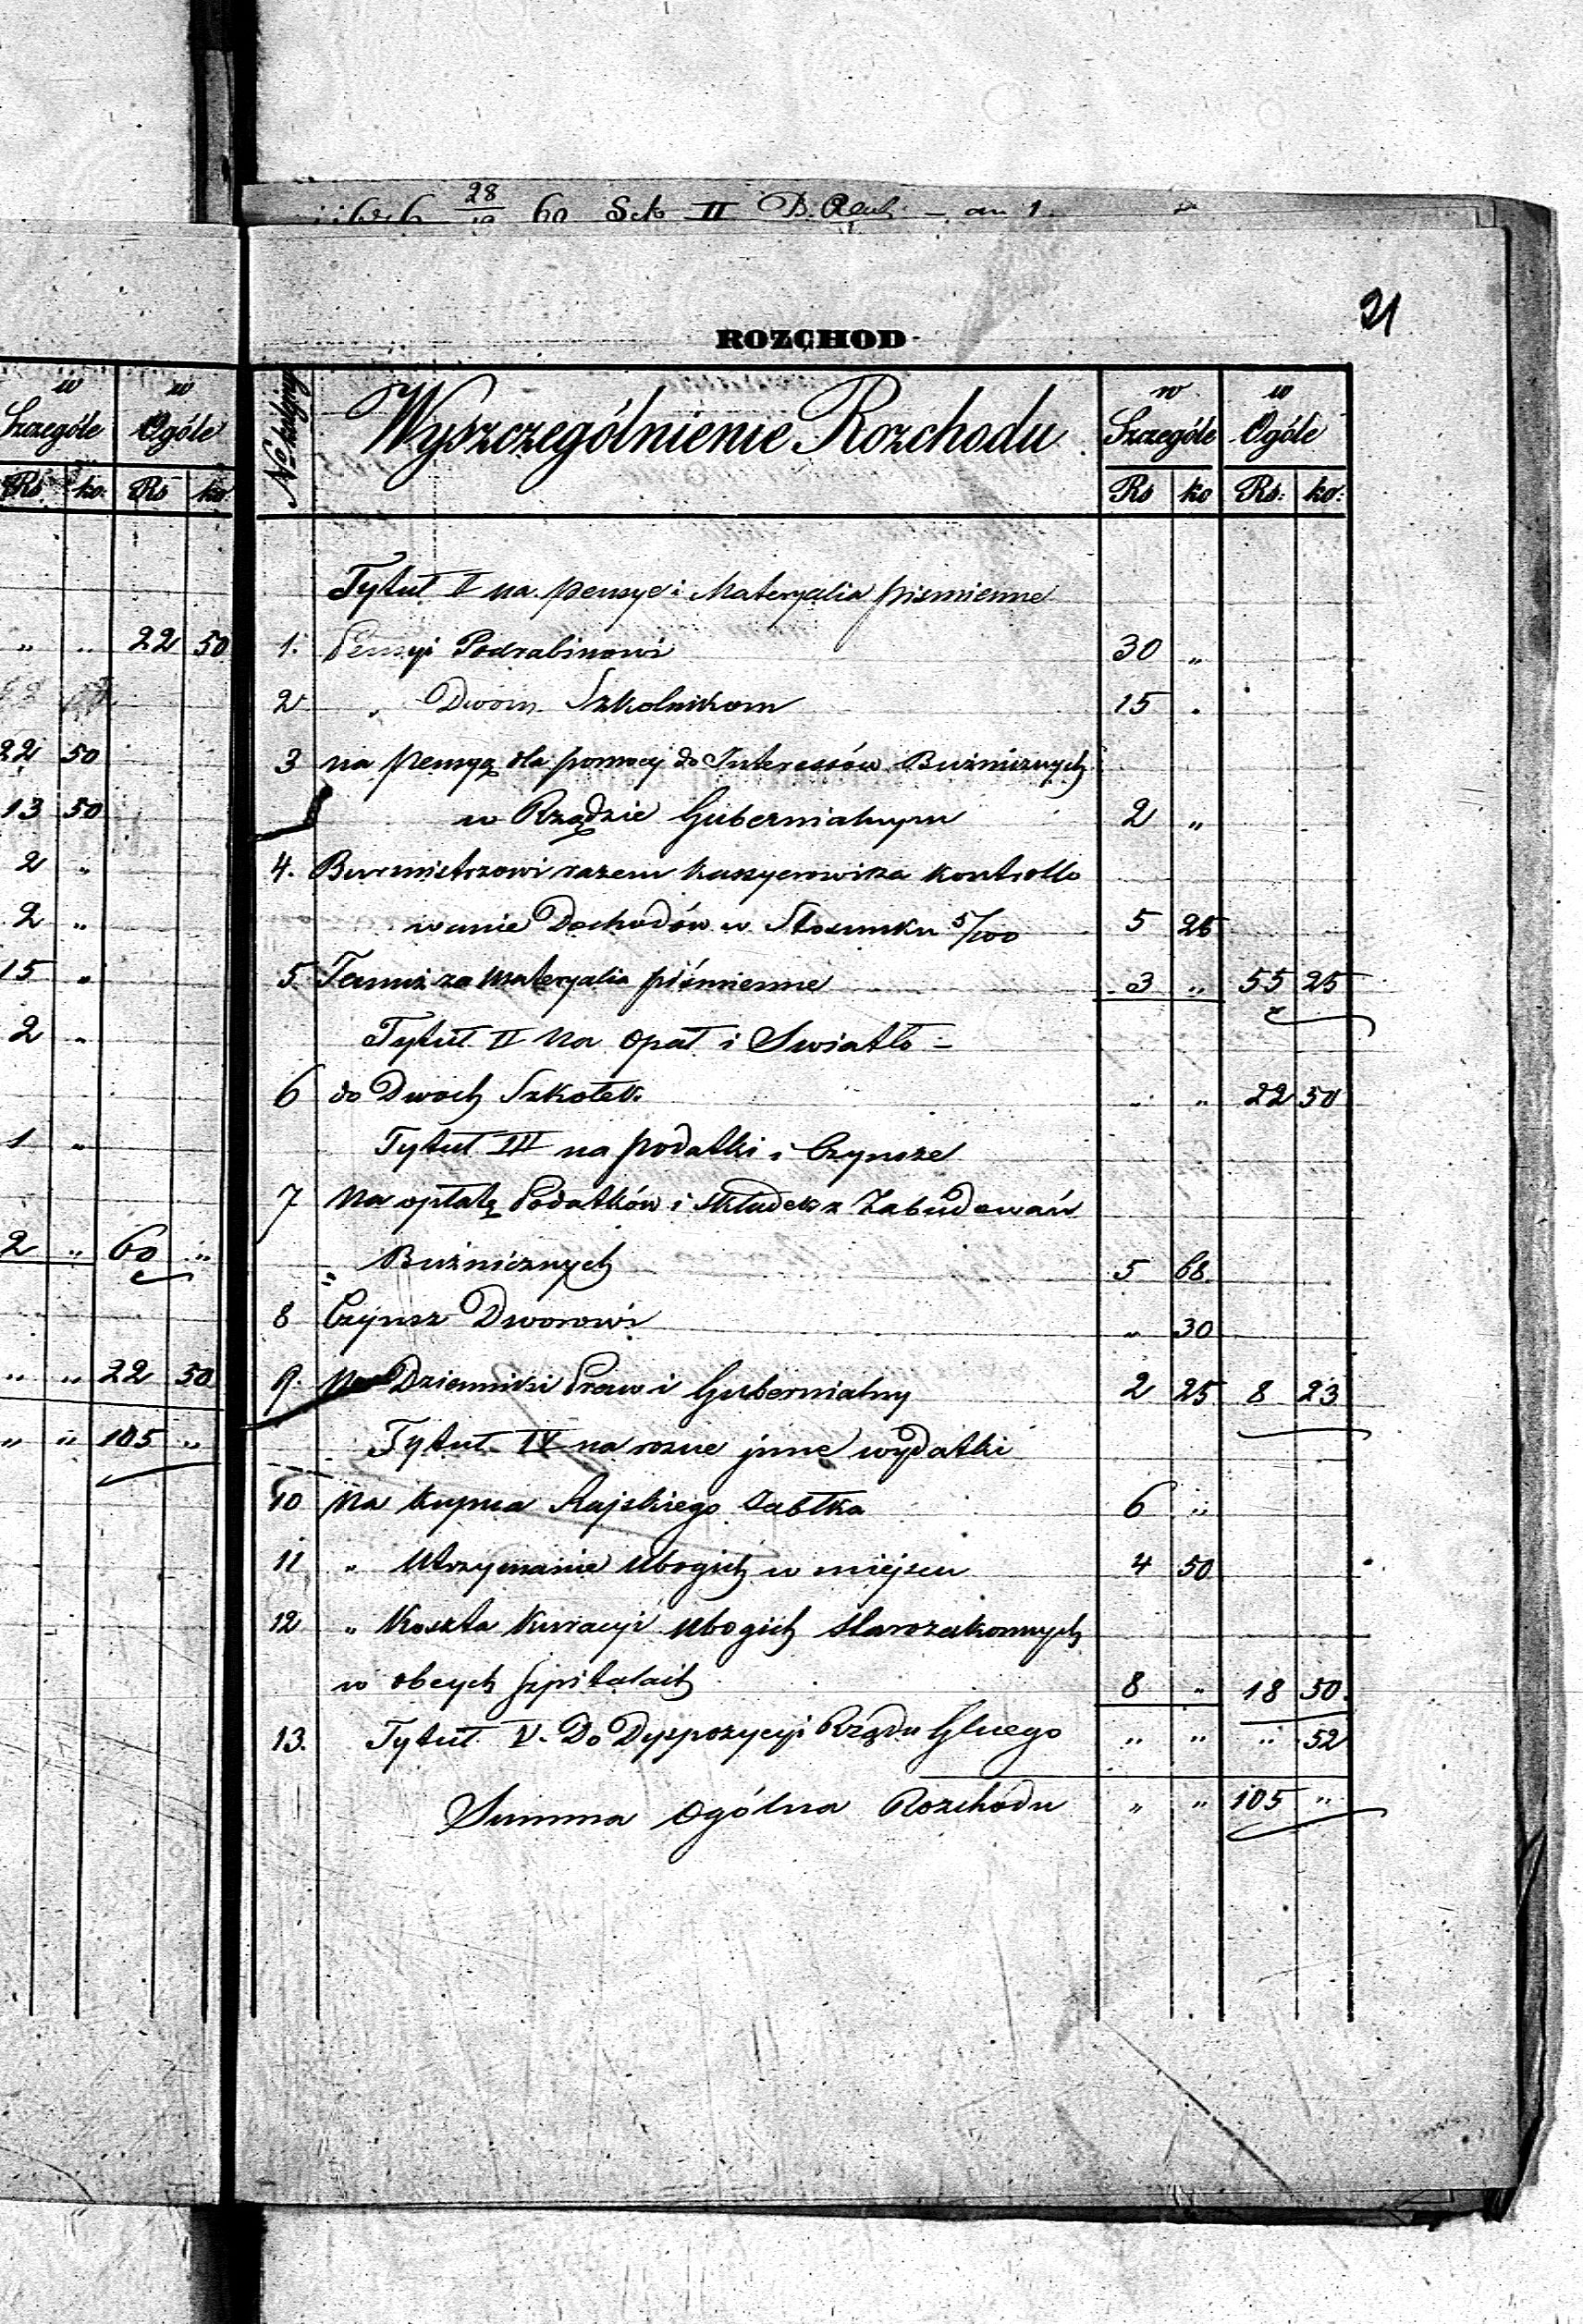 28
60 Sek II
21
ROZCHOD
w Szczególe w Ogóle
Rs ko: Rs ko:
" " 22 50
22 50
13 50
2 "
2 "
15 "
2 "
1 "
2 " 60 "
" " 22 50
" " 105 "
No kolejny Wyszczególnienie Rozchodu w Szczególe w Ogóle
Rs ko Rs: ko:
Tytuł na pensye i Materyalia piśmienne
1. Pensyi Podrabinowi 30 "
2 " Dwom Szkolnikom 15 "
3 na pensyę dla pomocy do Interessów Bużnicznych
w Rządzie Gubernialnym 2 "
4. Burmistrzowi razem Kassyerowi za kontrollo
wanie Dochodów w Stosunku 5/100 5 25
5. Temuż za materyalia piśmienne 3 " 55 25
Tytuł II na opał i Swiatło -
6 do Dwoch Szkołek " " 22 50
Tytuł III na podatki i Czynsze
7 na opłatę Podatków i składek z Zabudowań
= Bużnicznych 5 68
8 Czynsz Dworowi " 30
9. na Dzienniki Praw i Gubernialny 2 25 8 23
Tytuł IV na rozne inne wydatki
10 na kupna Rajskiego Jabłka 6 "
11 " Utrzymanie Ubogich w miejscu 4 50
12 " Koszta Kuracyi Ubogich starozakonnych
w obcych Szpitalach 8 " 18 50.
13. Tytuł V. Do Dyspozycyi Rządu Glnego " " " 52
Summa Ogólna Rozchodu " " 105 "